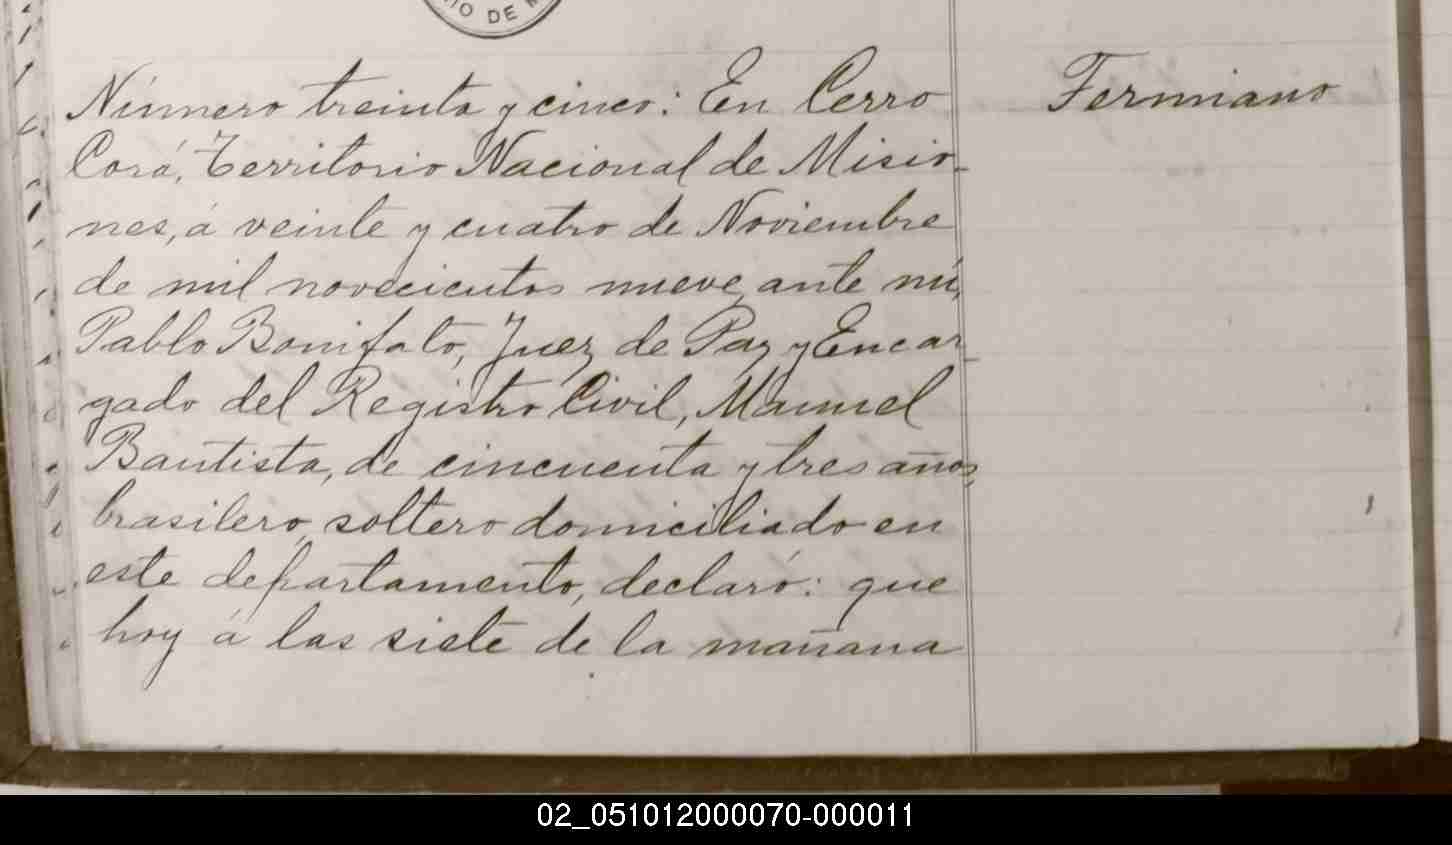 IO DE M
Número treinta y cinco: En Cerro
Corá, Territorio Nacional de Misio-
nes, á veinte y cuatro de Noviembre
de mil novecientos nueve, ante mí,
Pablo Bonifato, Juez de Paz y Encar-
gado del Registro Civil, Manuel
Bautista, de cincuenta y tres años,
brasilero, soltero domiciliado en
este departamento, declaró: que
hoy á las siete de la mañana
Fermiano
02_051012000070-000011